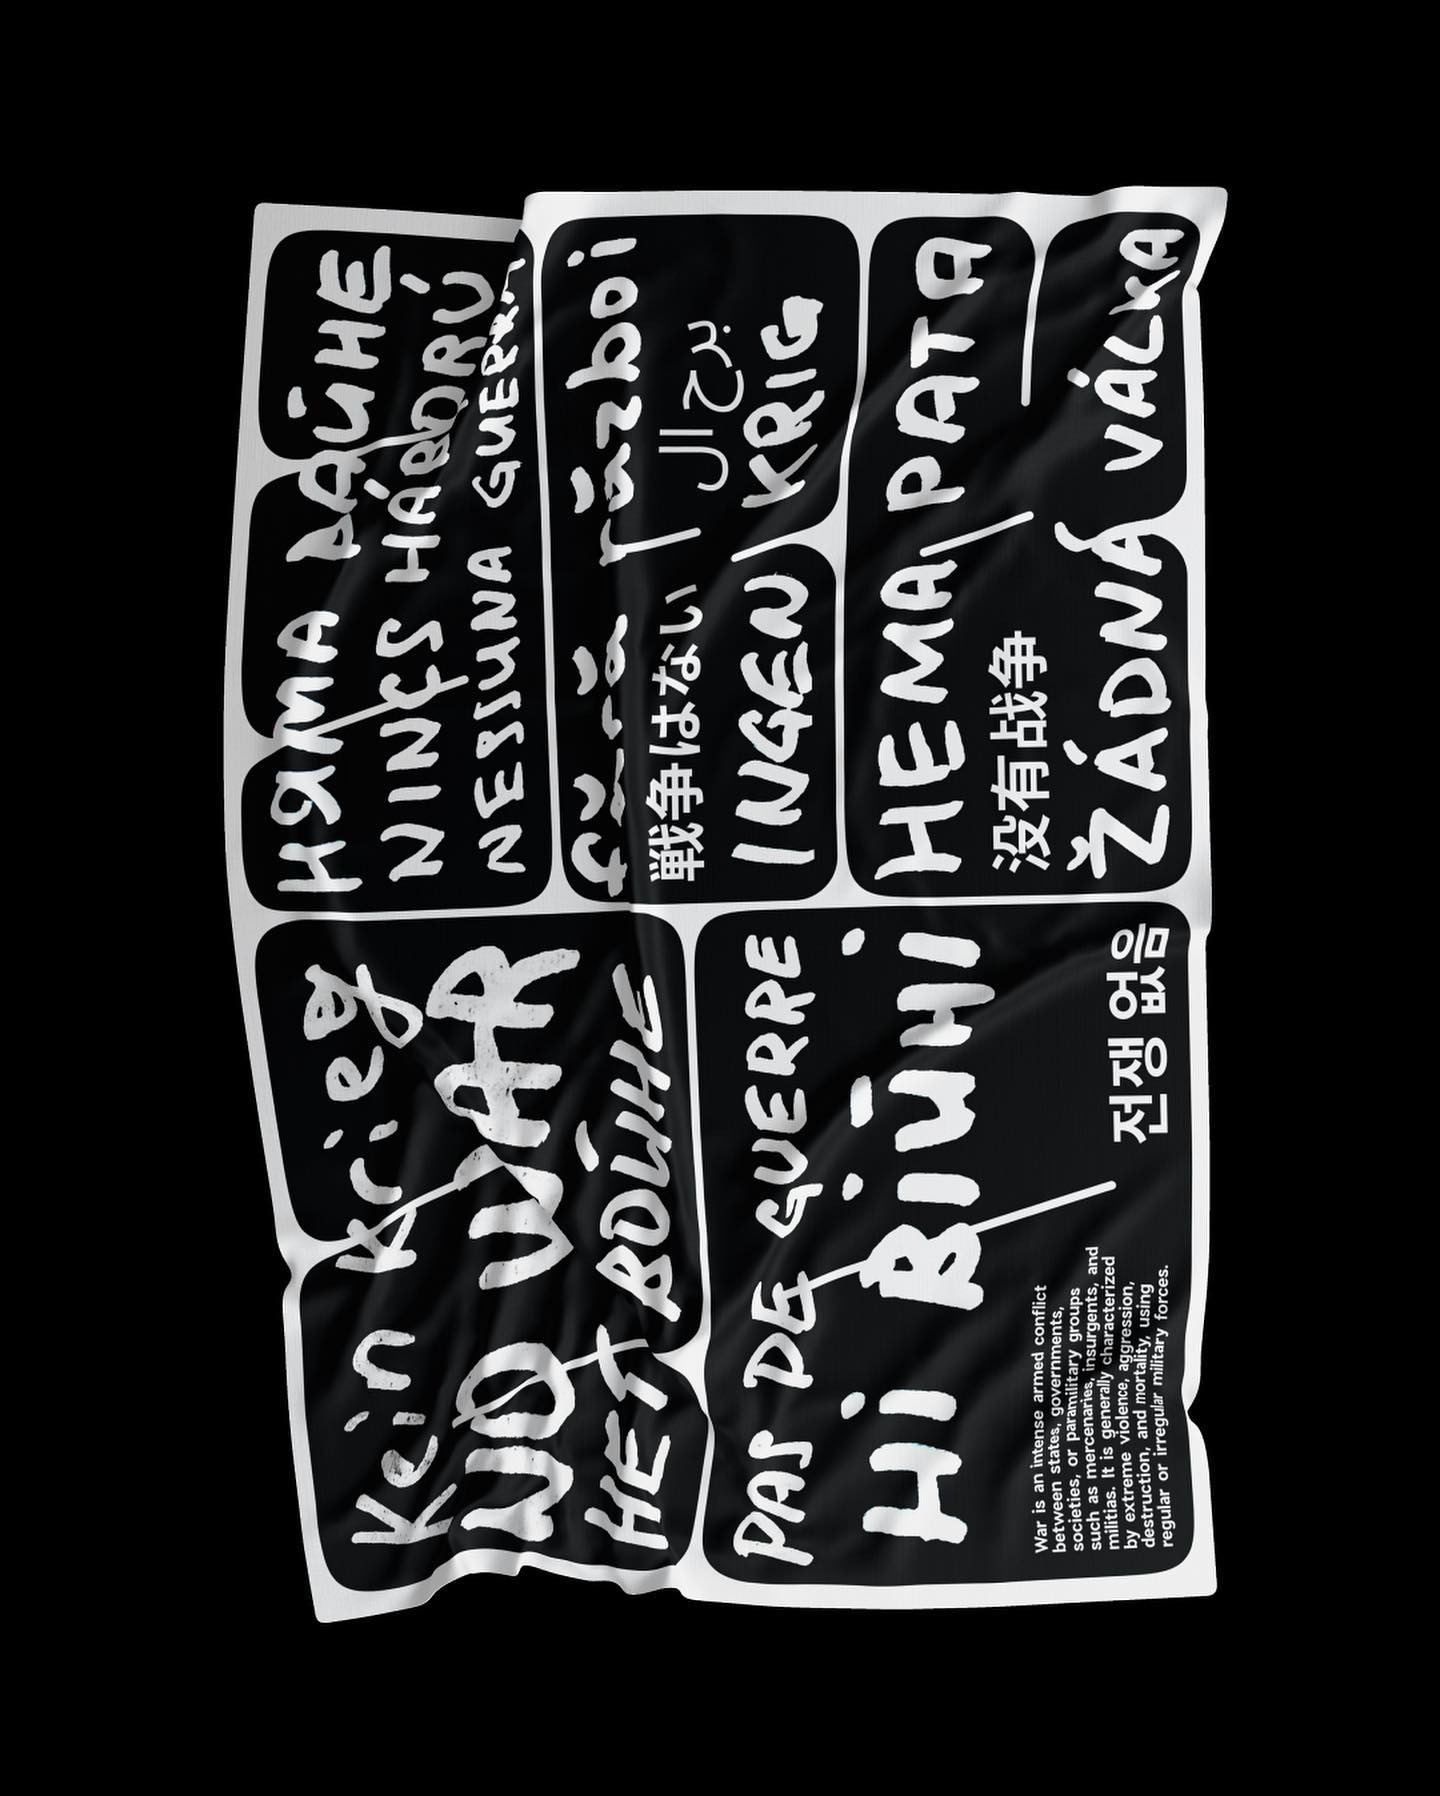 Kein Krieg
NO WAR
НЕТ ВОЙНЕ
PAS DE GUERRE
Ні ВІЙНІ
War is an intense armed conflict
between states, governments,
societies, or paramilitary groups
such as mercenaries, insurgents, and
militias. It is generally characterized
by extreme violence, aggression,
destruction, and mortality, using
regular or irregular military forces.
전쟁 없음
НЯМА ВАЙНЕ
NINCS HÁBORÚ
NESSUNA GUERRA
fără război
戦争はない
INGEN KRIG
НЕМА РАТА
没有战争
ŽÁDNÁ VÁLKA